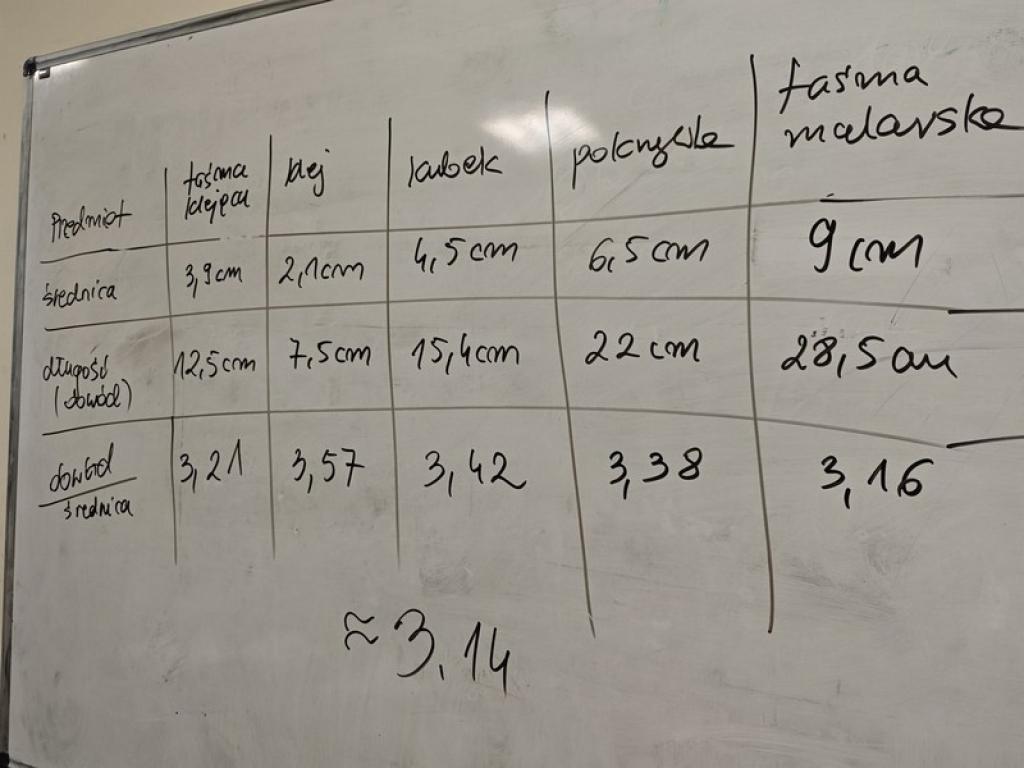 Przedmiot
taśma
klejąca
klej
kubek
pokrywka
taśma
malarska
średnica
3,9cm
2,1cm
4,5cm
6,5cm
9cm
długość
(obwód)
12,5cm
7,5cm
15,4cm
22cm
28,5cm
obwód
średnica
3,21
3,57
3,42
3,38
3,16
≈3,14